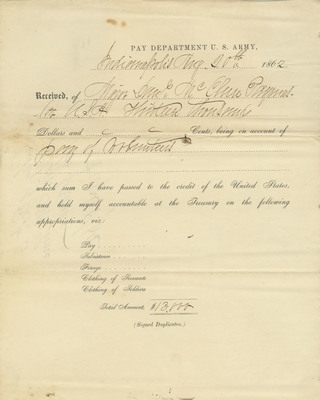 PAY DEPARTMENT U. S. ARMY,
Indianapolis Aug 20th 1862
Received, of Major Danl McClure Paymast
U.S.A. Thirteen Thousand
Dollars and Cents, being on account of
pay of Volunteers
which sum I have passed to the credit of the United States,
and hold myself accountable at the Treasury on the following
appropriations, viz:
Pay
Subsistence
Forage
Clothing of Servants
Clothing of Soldiers
Total Amount, $13,000
(Signed Duplicates.)